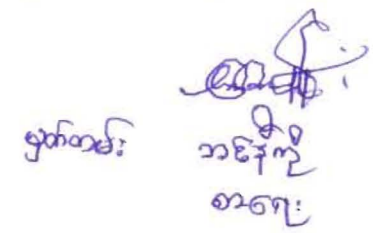 မှတ်တမ်း ဘင်နီကို
စာရေး